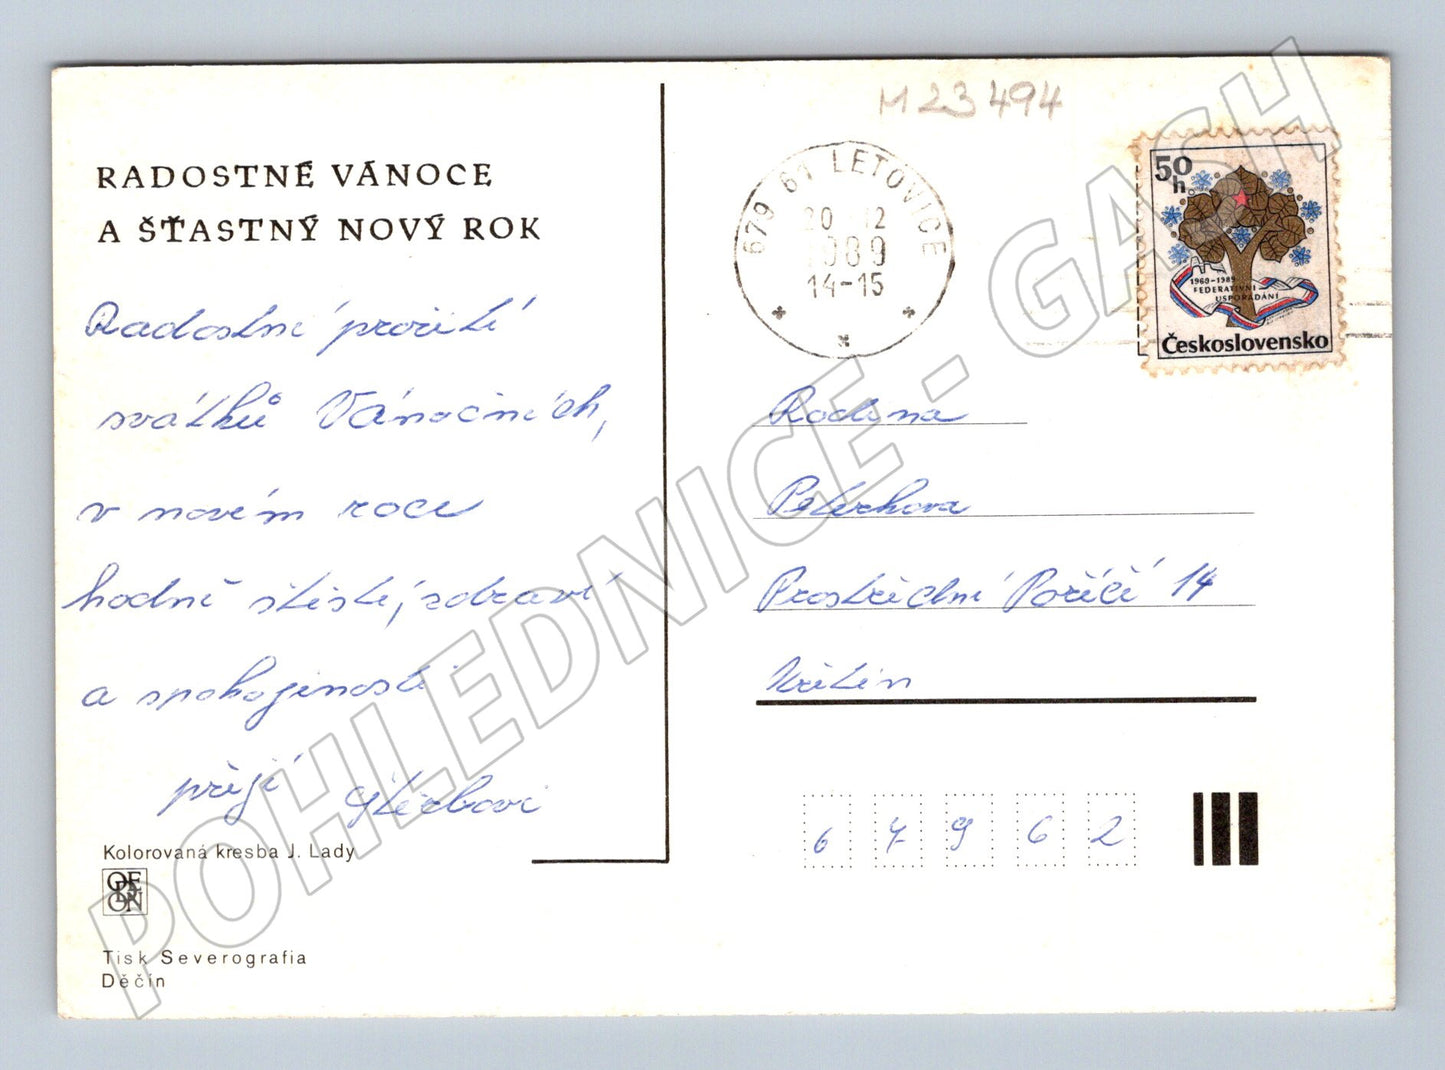 M 23 494
RADOSTNÉ VÁNOCE
A ŠŤASTNÝ NOVÝ ROK
Radostné prožití
svátků Vánočních,
v novém roce
hodně štěstí, zdraví
a spokojenosti
přejí
Kolorovaná kresba J. Lady
Tisk Severografia
Děčín
679 61 LETOVICE
20 12
1989
14-15
50
h
1969-1989
FEDERATIVNÍ
USPOŘÁDÁNÍ
Československo
Rodina
Peterkova
Prostřední Poříčí 14
Křetín
6 7 9 6 2
POHLEDNICE - GASH